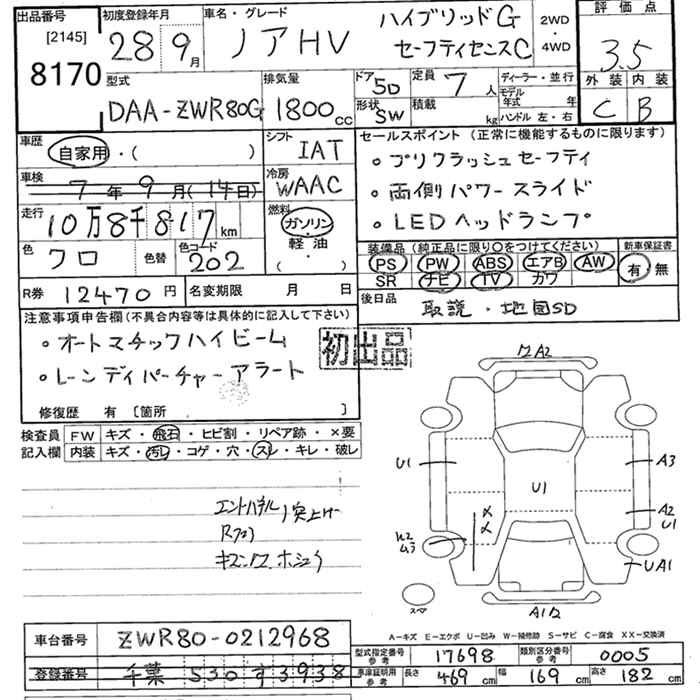 出品番号
[2145]
8170
初度登録年月
28年9月
車名・グレード
ノア HV
ハイブリッドG
セーフティセンスC
2WD
4WD
評価点
3.5
外装 内装
C B
型式
DAA-ZWR80G
排気量
1800cc
ドア 5D
形状 SW
定員 7人
積載 kg
ディーラー・並行
モデル年式 年
ハンドル 左・右
車歴
自家用・( )
シフト
IAT
車検
7年9月(14日)
冷房
WAAC
走行
10万8千817km
燃料
ガソリン・
軽油
( )
色
クロ
色替
色コード
202
セールスポイント(正常に機能するものに限ります)
。プリクラッシュセーフティ
。両側パワースライド
。LEDヘッドランプ
装備品(純正品に限り〇をつけてください)
PS PW ABS エアB AW
SR ナビ TV カワ
新車保証書
有・無
R券 12470円
名変期限 月 日
後日品
取説・地図SD
注意事項申告欄(不具合内容等は具体的に記入して下さい)
。オートマチックハイビーム
。レーンディパーチャーアラート
初出品
修復歴 有 [箇所 ]
検査員記入欄
FW キズ・飛石・ヒビ割・リペア跡・×要
内装 キズ・汚レ・コゲ・穴・スレ・キレ・破レ
突上ゲ
ワA2
U1
A3
U1
A2
U1
UA1
スペ
A1ワ
A-キズ E-エクボ U-凹み W-補修跡 S-サビ C-腐食 XX-交換済
車台番号
ZWR80-0212968
登録番号
千葉 530 す 3938
型式指定番号
参考
17698
類別区分番号
参考
0005
車庫証明用
参考
長さ 469cm
幅 169cm
高さ 182cm